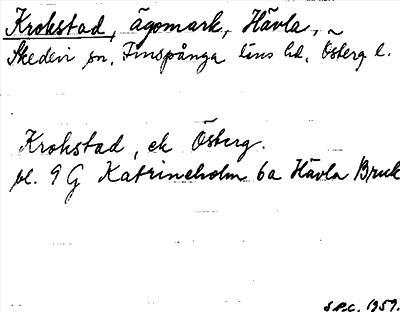 Krokstad, ägomark, Hävla, ~
Skedevi sn, Finspånga läns hd, Österg l.
Krokstad, ek Österg.
bl. 9 G Katrineholm 6a Hävla Bruk
S.P.C. 1959.